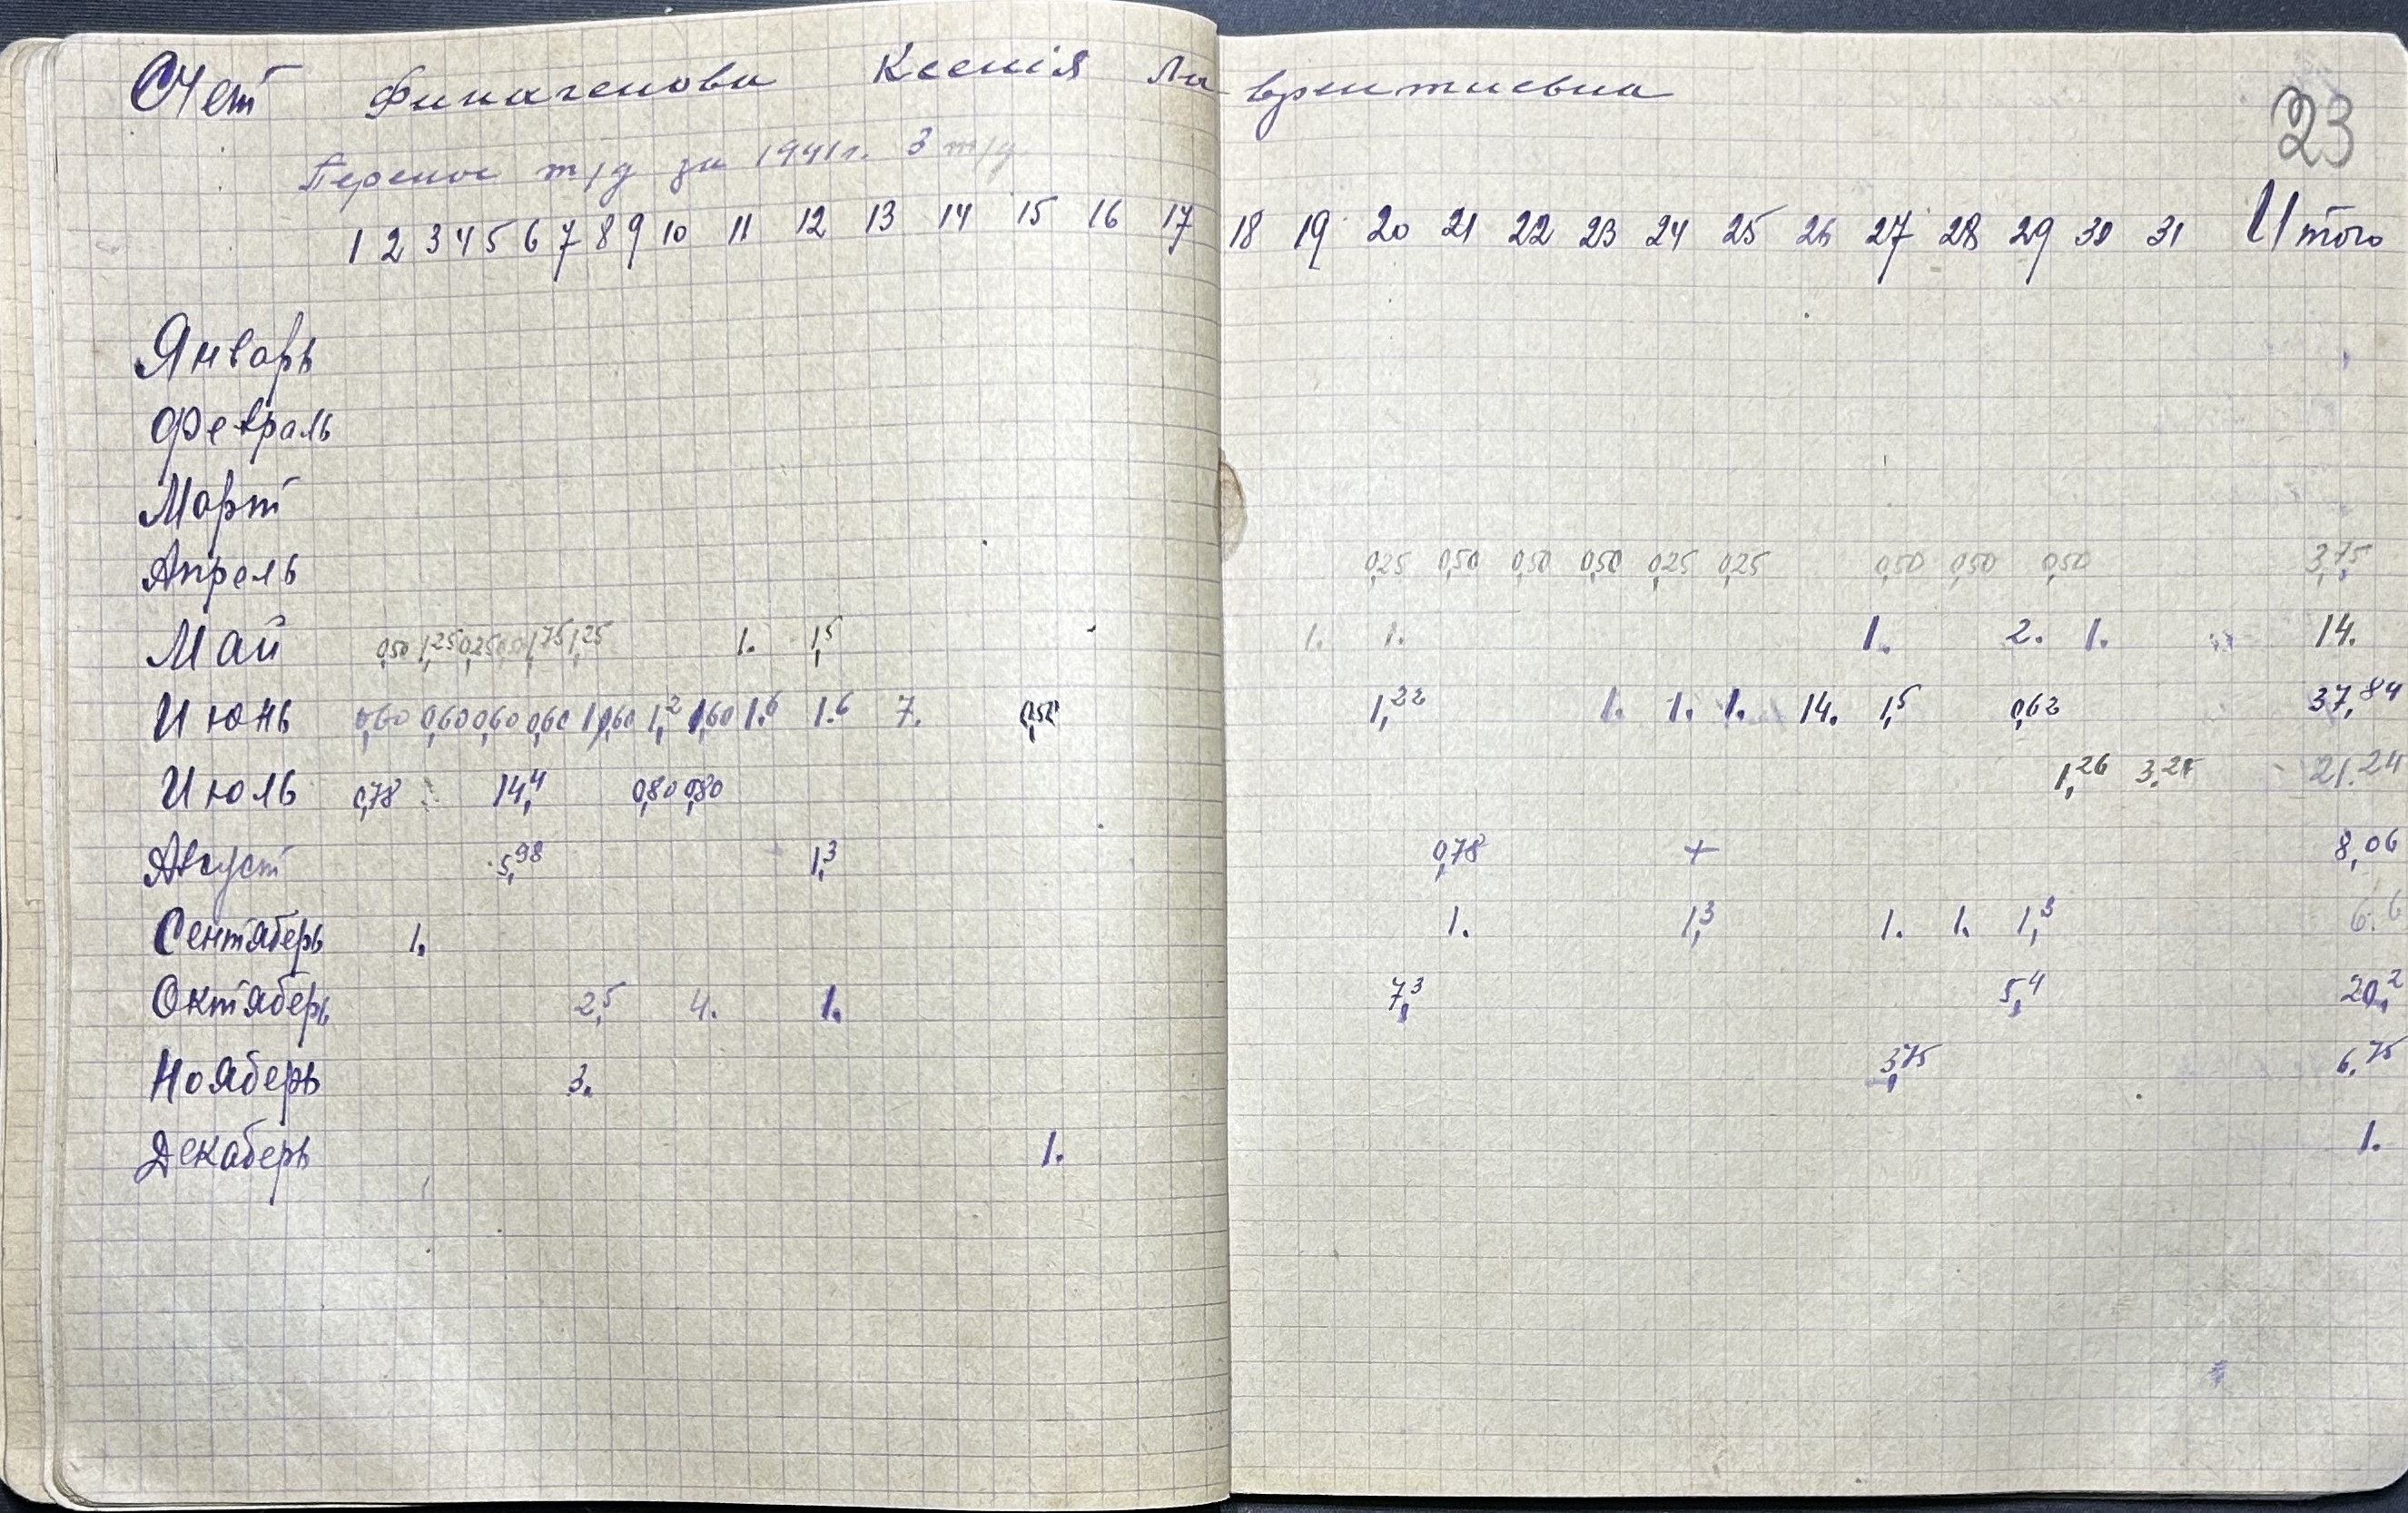 Счет Финагенова Ксенiя Лаврентиевна
23
Перенос т/д за 1941г. 3 т/д
1 2 3 4 5 6 7 8 9 10 11 12 13 14 15 16 17 18 19 20 21 22 23 24 25 26 27 28 29 30 31 Итого
Январь
Февраль
Март
Апрель 0,25 0,50 0,50 0,50 0,25 0,25 0,50 0,50 0,50 3,75
Май 0,50 1,25 0,25 1,75 1,25 1. 1,5 1. 1. 1. 2. 1. 14.
Июнь 0,60 0,60 0,60 0,60 1,2 1,60 1.6 1.6 7. 0,52 1,22 1. 1. 1. 14. 1,5 0,62 37,84
Июль 0,78 14,4 0,80 0,80 1,26 3.2 21.24
Август 5,98 1,3 0,78 + 8,06
Сентяберь 1. 1. 1,3 1. 1. 1,3 6.6
Октяберь 2,5 4. 1. 7,3 5,4 20,2
Нояберь 3. 3,75 6.75
Декаберь 1. 1.